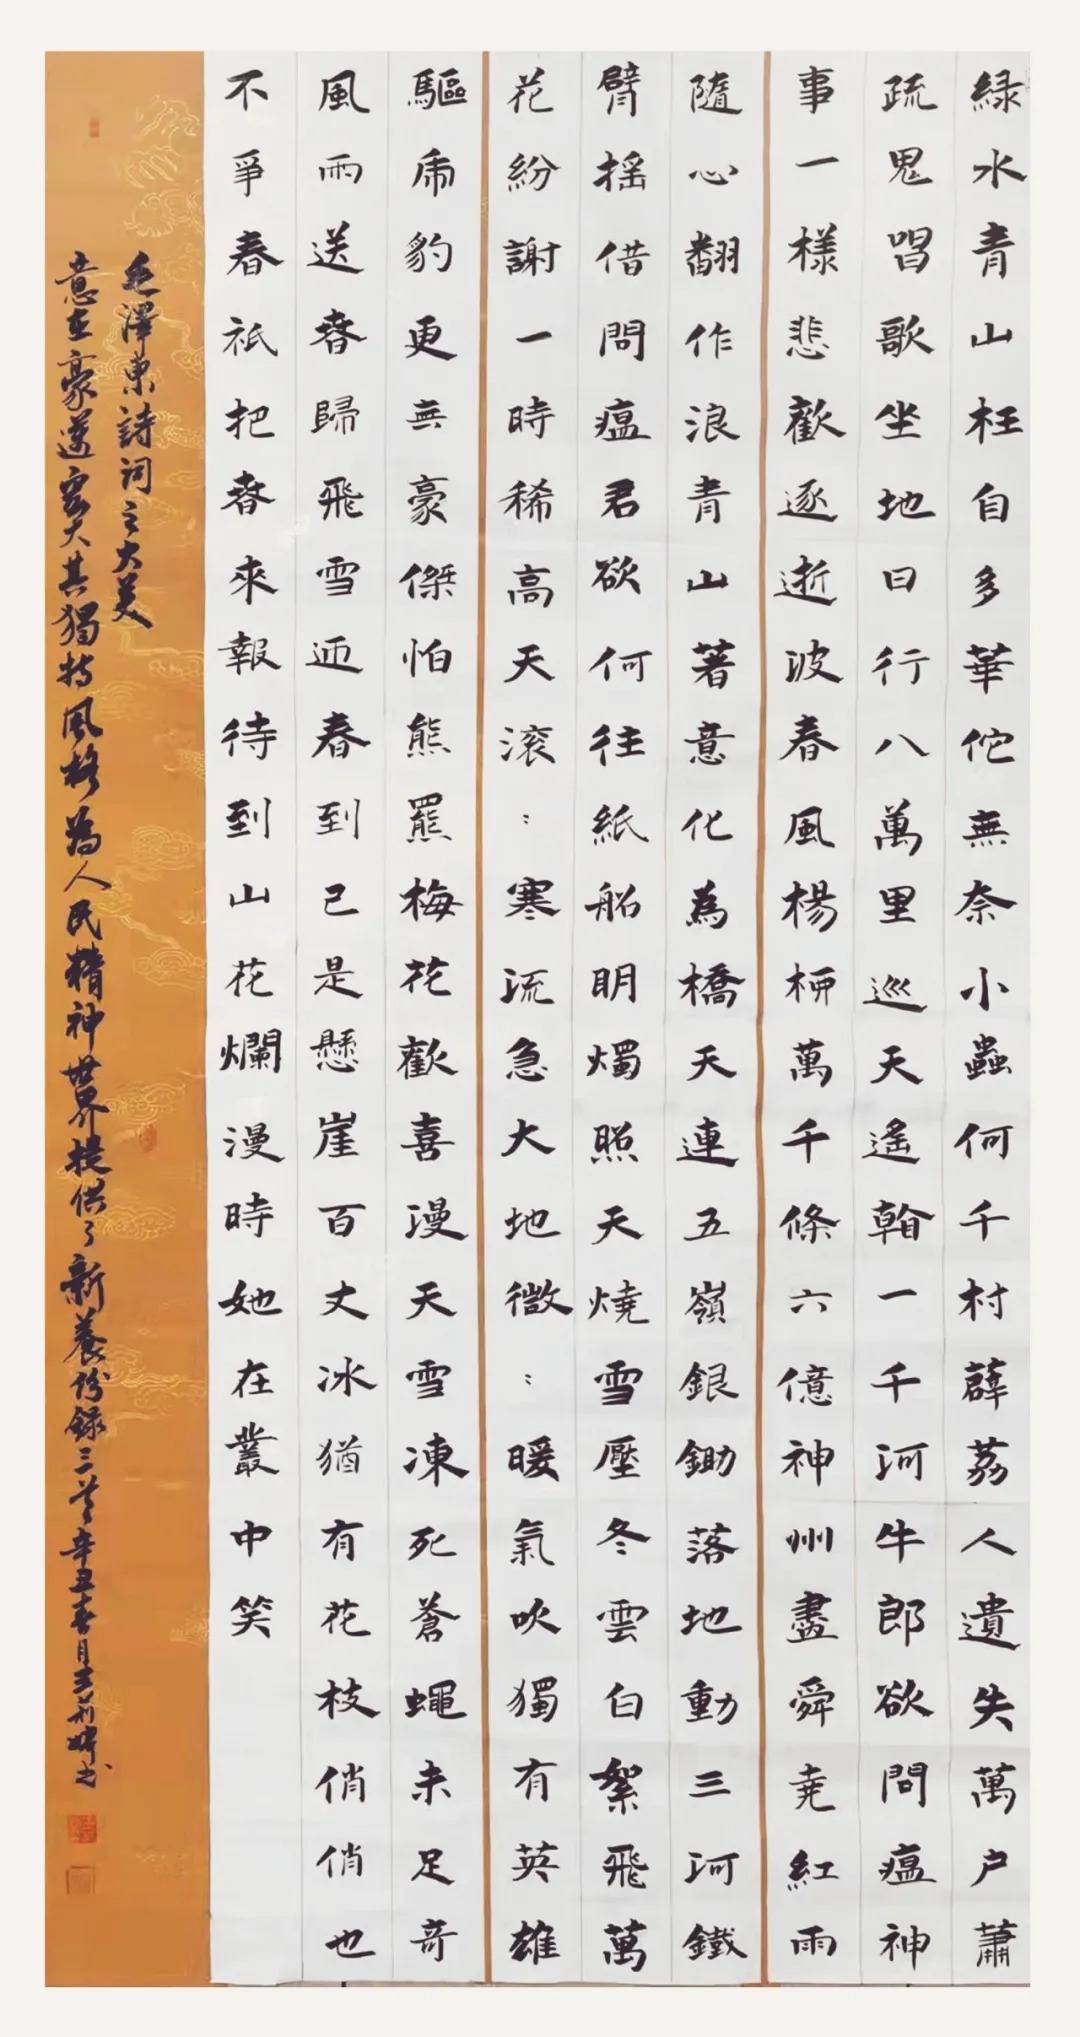 緑水青山枉自多華佗無奈小蟲何千村薜荔人遺失萬户蕭
疏鬼唱歌坐地日行八萬里巡天遙看一千河牛郎欲問瘟神
事一樣悲歡逐逝波春風楊柳萬千條六億神州盡舜堯紅雨
隨心翻作浪青山著意化為橋天連五嶺銀鋤落地動三河鐵
臂摇借問瘟君欲何往紙船明燭照天燒雪壓冬雲白絮飛萬
花紛謝一時稀高天滚:寒流急大地微:暖氣吹獨有英雄
驅虎豹更無豪傑怕熊羆梅花歡喜漫天雪凍死蒼蠅未足奇
風雨送春歸飛雪迎春到已是懸崖百丈冰猶有花枝俏俏也
不爭春祇把春來報待到山花爛漫時她在叢中笑
毛澤東詩詞之大美
意在豪邁宏大其獨特風格為人民精神世界提供了新養份録三首辛丑春月